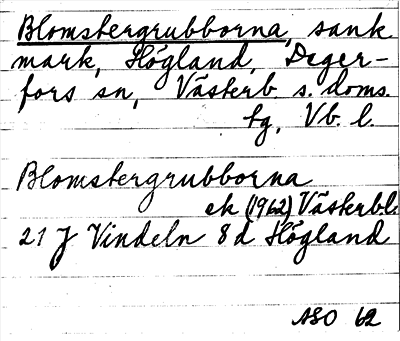 Blomstergrubborna, sank
mark, Högland, Deger-
fors sn, Västerb. s. doms.
tg, Vb. l.
Blomstergrubborna
ek (1962) Västerb.l.
21 J Vindeln 8 d Högland
ASO 62